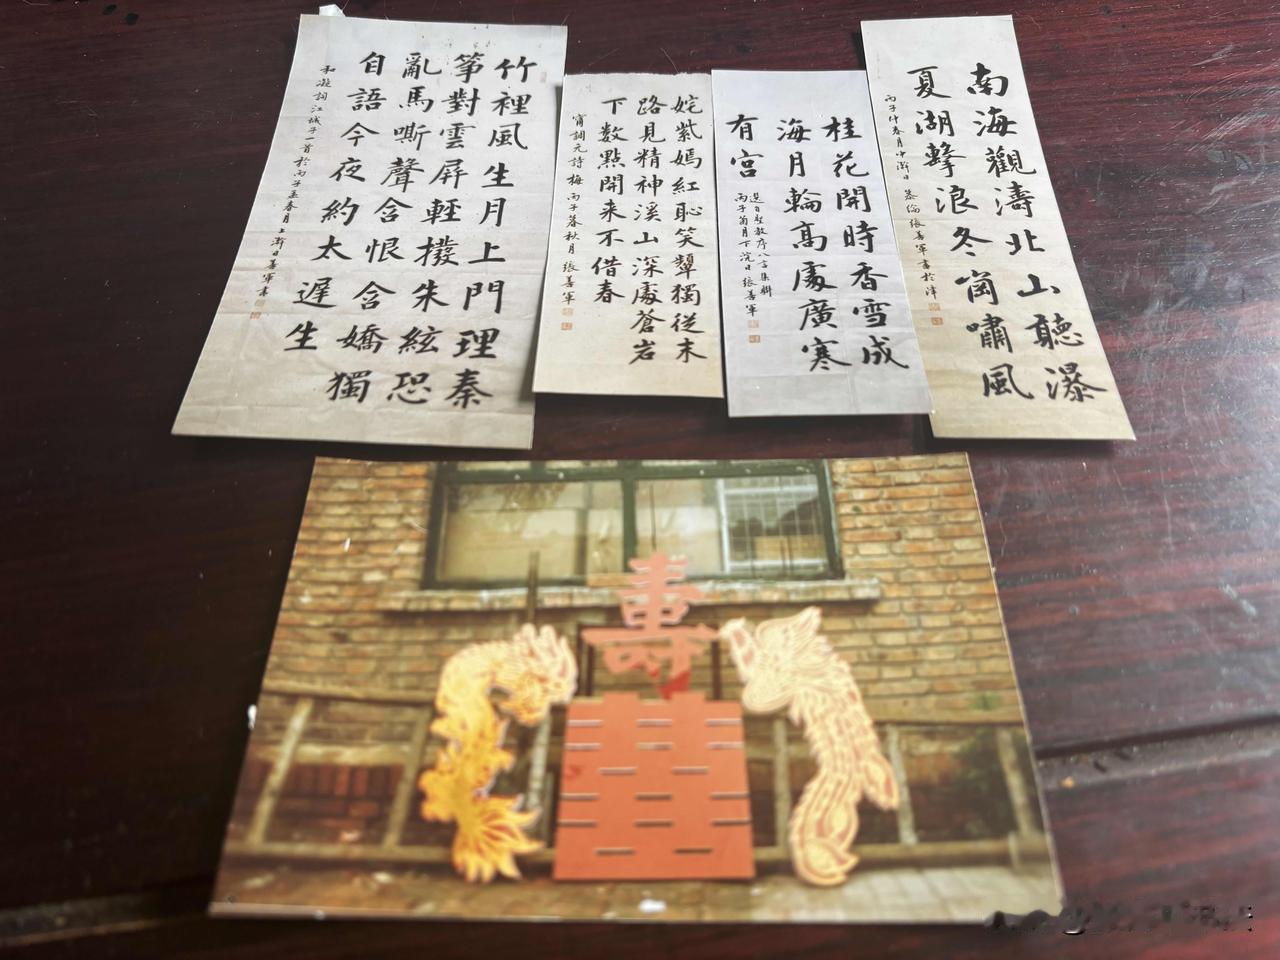 竹裡風生月上門理秦
筝對雲屏輕撥朱絃恐
亂馬嘶聲含恨含嬌獨
自語今夜約太遲生
和凝詞江城子一首於丙子孟春月上澣日善軍書
姹紫嫣紅恥笑顰獨從末
路見精神溪山深處蒼岩
下数點開来不借春
甯調元詩梅丙子暮秋月張善軍
桂花開時香雪成
海月輪高處廣寒
有宮
選自聖教序八言集聯
丙子菊月下浣日張善軍
南海觀濤北山聽瀑
夏湖擊浪冬崗嘯風
丙子仲春月中澣日 張善軍書於津
壽
囍